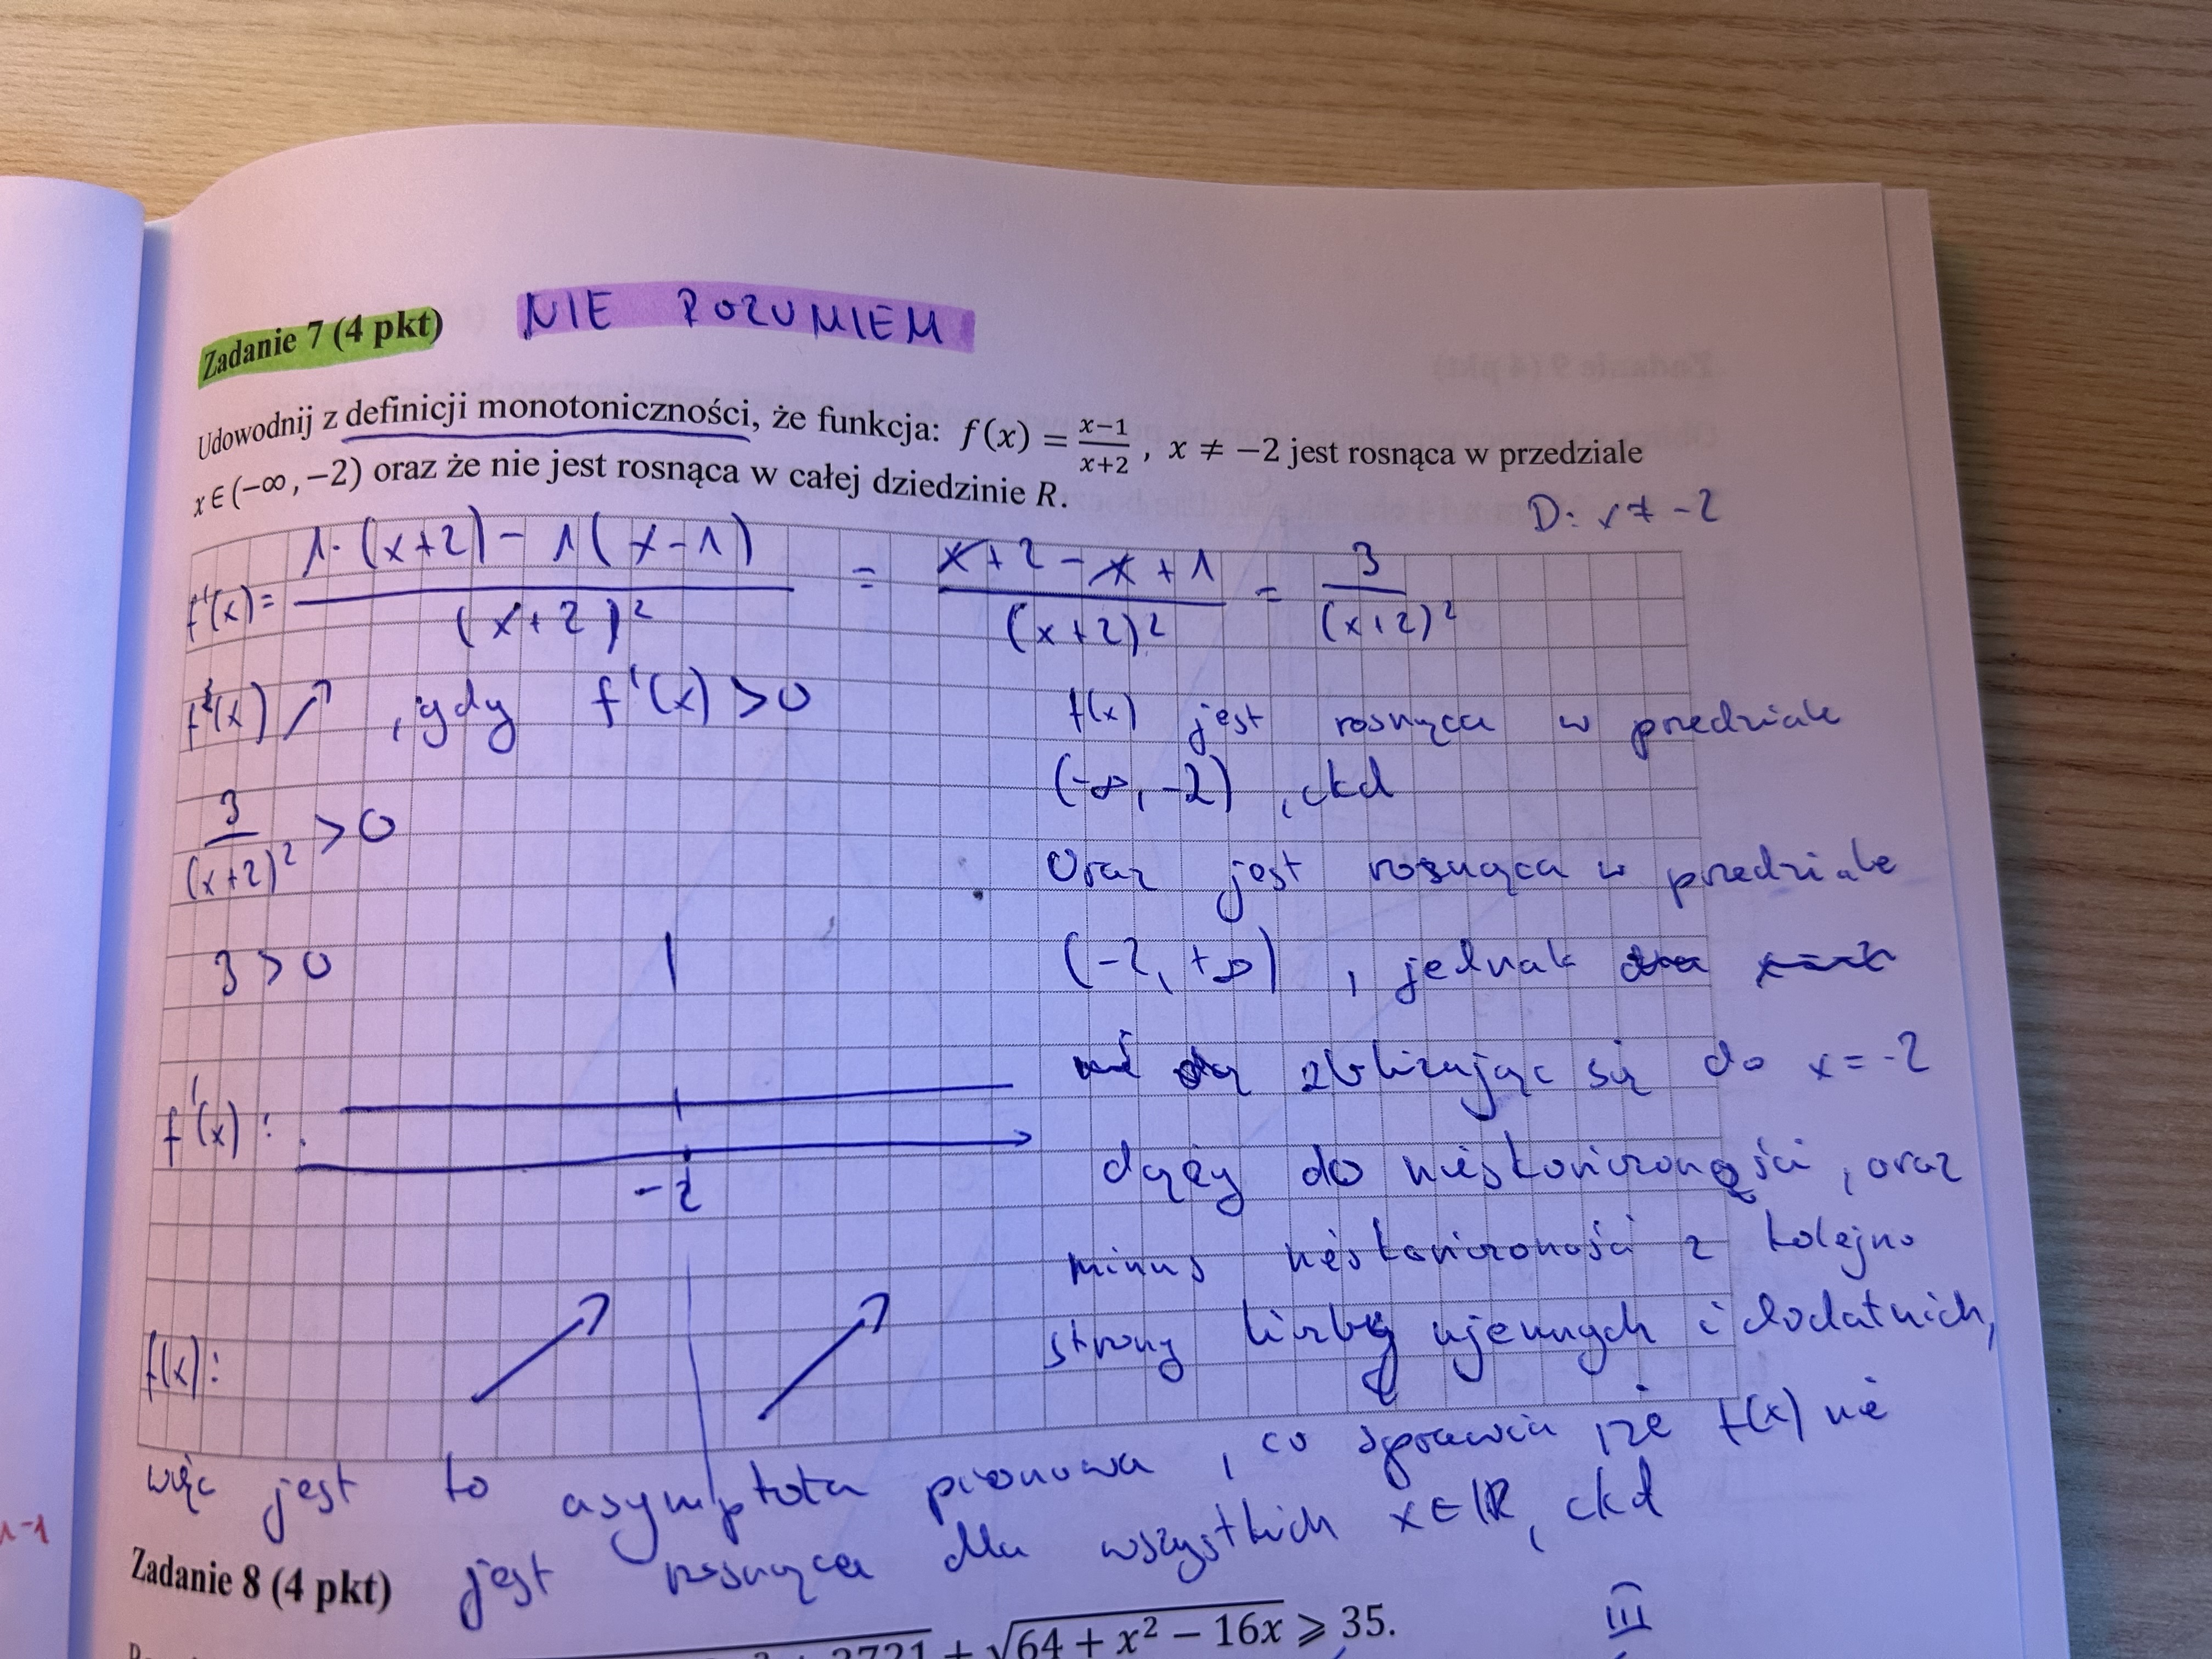 Zadanie 7 (4 pkt) NIE ROZUMIEM
Udowodnij z definicji monotoniczności, że funkcja: f(x) = \frac{x-1}{x+2}, x ≠ −2 jest rosnąca w przedziale
x ∈ (−∞, −2) oraz że nie jest rosnąca w całej dziedzinie R.
D: x ≠ -2
f'(x) = \frac{1·(x+2) - 1(x-1)}{(x+2)^2} = \frac{x+2-x+1}{(x+2)^2} = \frac{3}{(x+2)^2}
f(x) ↗, gdy f'(x) > 0
\frac{3}{(x+2)^2} > 0
3 > 0
f'(x):
-2
f(x):
f(x) jest rosnąca w przedziale
(-∞, -2), ckd
Oraz jest rosnąca w przedziale
(-2, +∞), jednak
zbliżając się do x = -2
dąży do nieskończoności, oraz
minus nieskończoności z kolejno
strony liczby ujemnych i dodatnich,
więc jest to asymptota pionowa, co sprawia, że f(x) nie
jest rosnąca dla wszystkich x ∈ ℝ, ckd
n-1
Zadanie 8 (4 pkt)
2721 + \sqrt{64 + x^2 − 16x} ⩾ 35.
III